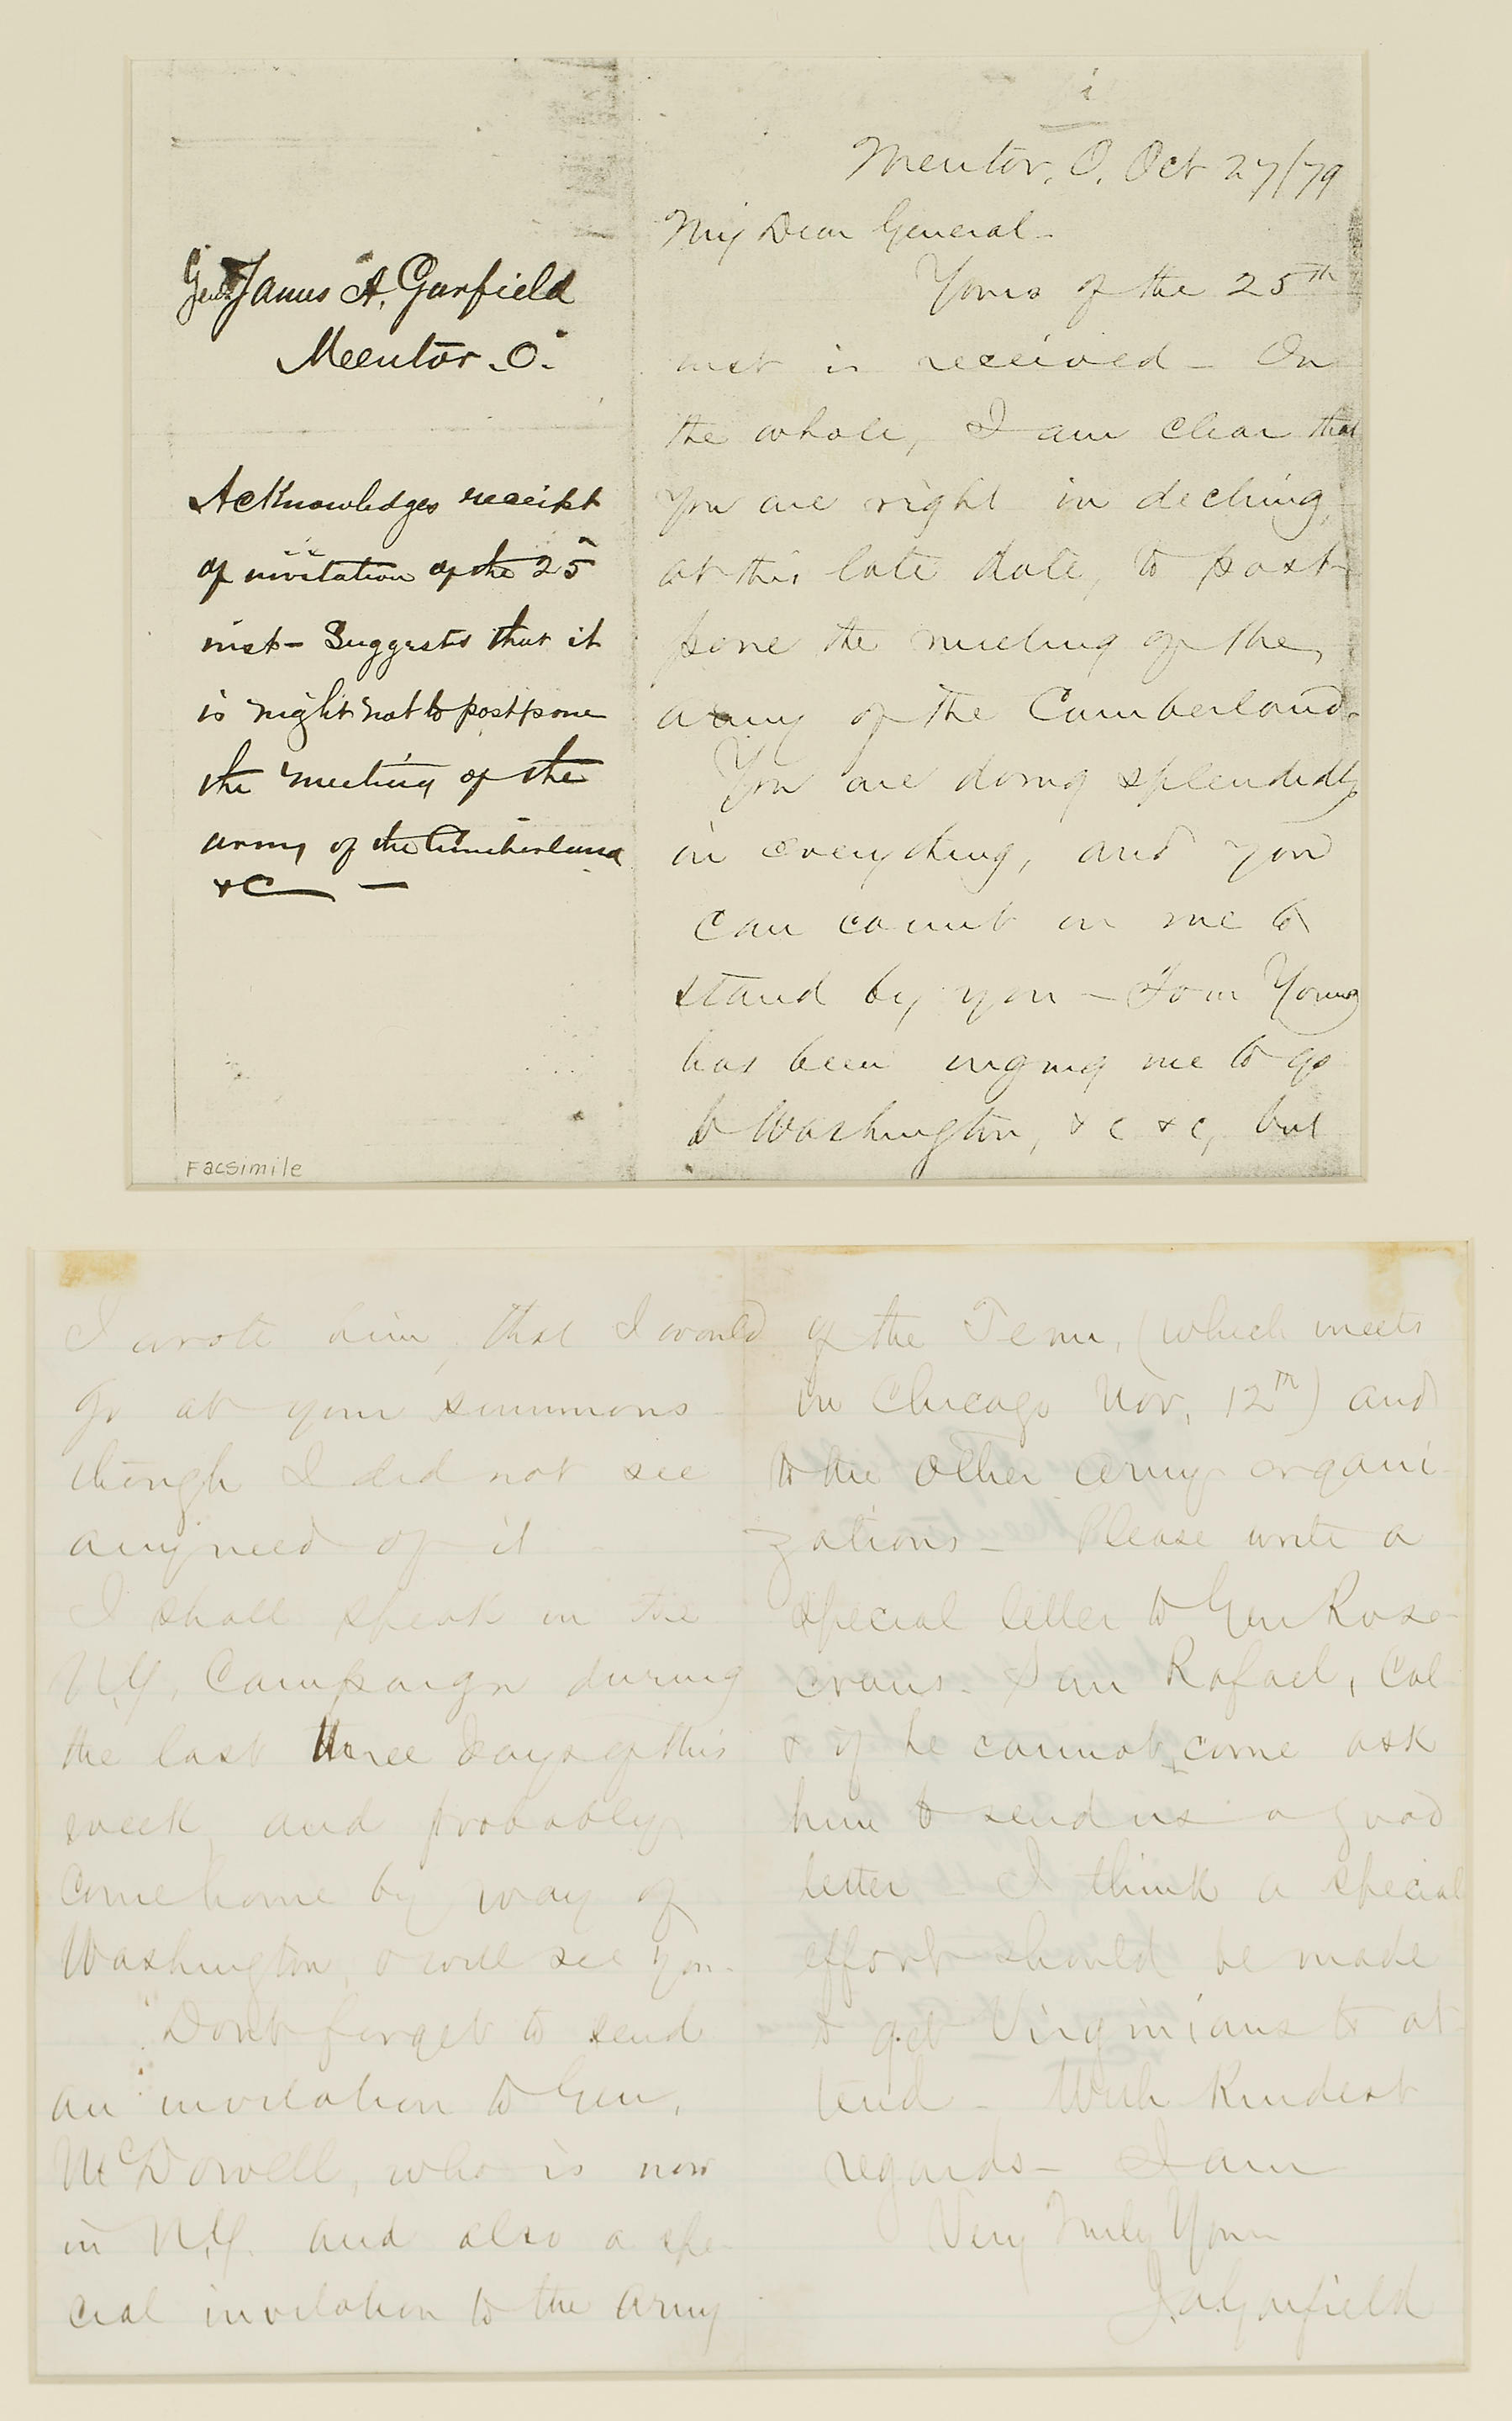 Genl James A. Garfield
Mentor. O.
Acknowledges receipt
of invitation of the 25
inst - Suggests that it
is right not to postpone
the meeting of the
army of the Cumberland
&C —
Facsimile
Mentor, O. Oct 27/79
My Dear General -
Yours of the 25th
inst is received - On
the whole, I am clear that
you are right in decling,
at this late date, to post-
pone the meeting of the
army of the Cumberland.
You are doing splendidly
in everything, and you
can count on me to
stand by you - Tom Young
has been urging me to go
to Washington, &c &c, but
I wrote him, that I would
go at your summons
though I did not see
any need of it
I shall speak in the
N.Y. Campaign during
the last three days of this
week and probably
come home by way of
Washington, & will see you.
Dont forget to send
an invitation to Gen.
McDowell, who is now
in N.Y. and also a spe-
cial invitation to the Army
of the Tenn, (which meets
in Chicago Nov. 12th) and
to the other army organi-
zations - Please write a
special letter to Gen Rose-
crans. San Rafael, Cal
& if he cannot come ask
him to send us a good
letter - I think a special
effort should be made
to get Virginians to at-
tend - With kindest
regards - I am
Very Truly Yours
J. A. Garfield